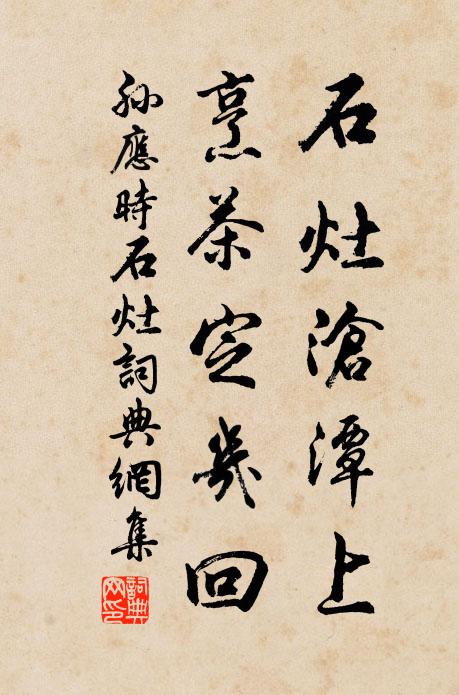 石灶滄潭上
烹茶定幾回
孫應時石灶詞典網集
詞典
网印